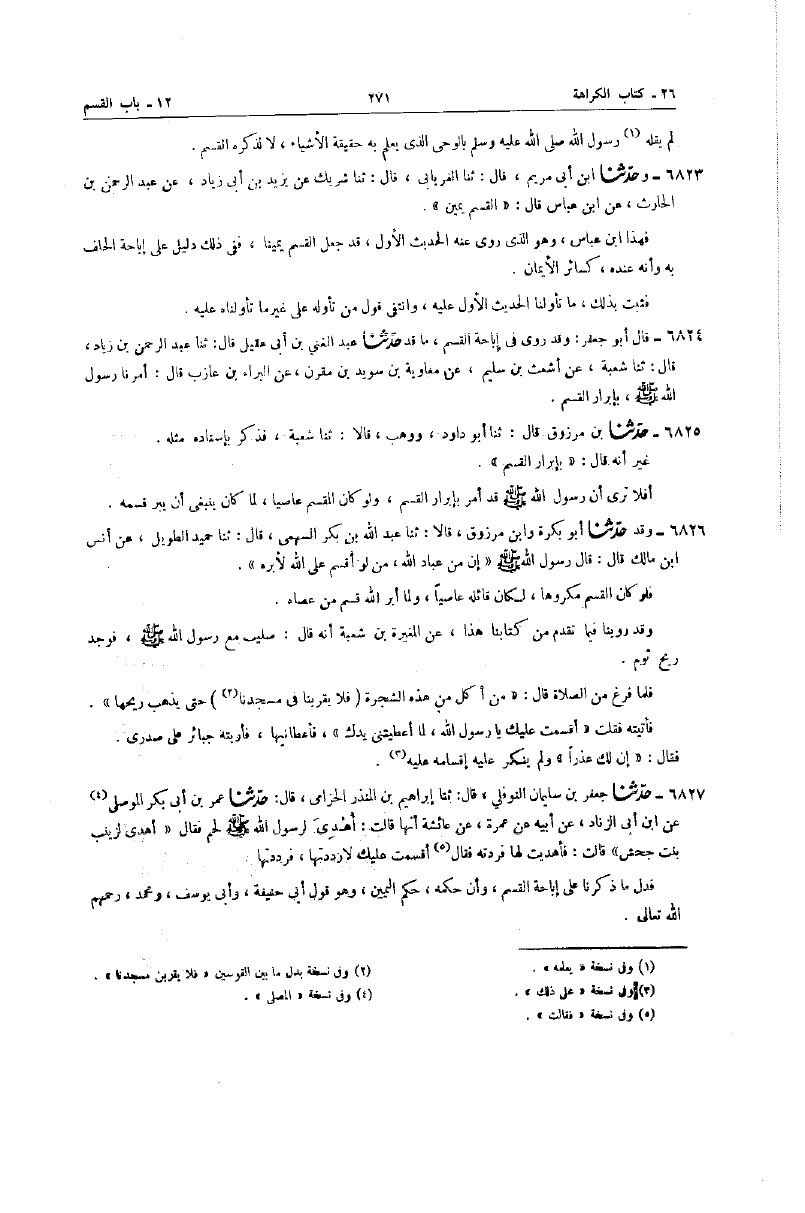 ٢٦ ـ كتاب الكراهة ٢٧١ ١٢ ـ باب القسم
لم يقله (١) رسول الله صلى الله عليه وسلم بالوحى الذى يعلم به حقيقة الأشياء ، لا لذكره القسم .
٦٨٢٣ ـ وحدثنا ابن أبى مريم ، قال : ثنا الفريابى ، قال : ثنا شريك عن يزيد بن أبى زياد ، عن عبد الرحمن بن
الحارث ، عن ابن عباس قال : « القسم يمين » .
فهذا ابن عباس ، وهو الذى روى عنه الحديث الأول ، قد جعل القسم يمينا ، ففى ذلك دليل على إباحة الحلف
به وأنه عنده ، كسائر الأيمان .
فثبت بذلك ، ما تأولنا الحديث الأول عليه ، وانتفى قول من تأوله على غير ما تأولناه عليه .
٦٨٢٤ ـ قال أبو جعفر : وقد روى فى إباحة القسم ، ما قد حدثنا عبد الغني بن أبى عقيل قال : ثنا عبد الرحمن بن زياد ،
قال : ثنا شعبة ، عن أشعث بن سليم ، عن معاوية بن سويد بن مقرن ، عن البراء بن عازب قال : أمرنا رسول
الله ﷺ ، بإبرار القسم .
٦٨٢٥ ـ حدثنا بن مرزوق قال : ثنا أبو داود ، ووهب ، قالا : ثنا شعبة ، فذكر بإسناده مثله .
غير أنه قال : « بإبرار القسم » .
أفلا ترى أن رسول الله ﷺ قد أمر بإبرار القسم ، ولو كان المقسم عاصيا ، لما كان ينبغى أن يبر قسمه .
٦٨٢٦ ـ وقد حدثنا أبو بكرة وابن مرزوق ، قالا : ثنا عبد الله بن بكر السهمى ، قال : ثنا حميد الطويل ، عن أنس
ابن مالك قال : قال رسول الله ﷺ « إن من عباد الله ، من لو أقسم على الله لأبره » .
فلو كان القسم مكروها ، لكان قائله عاصياً ، ولما أبر الله قسم من عصاه .
وقد روينا فيما تقدم من كتابنا هذا ، عن المغيرة بن شعبة أنه قال : صليت مع رسول الله ﷺ ، فوجد
ريح ثوم .
فلما فرغ من الصلاة قال : « من أكل من هذه الشجرة ( فلا يقربنا فى مسجدنا(٢) ) حتى يذهب ريحها » .
فأتيته فقلت « أقسمت عليك يا رسول الله ، لما أعطيتنى يدك » ، فأعطانيها ، فأريته جبائر على صدرى .
فقال : « إن لك عذراً » ولم ينكر عليه إقسامه عليه(٣) .
٦٨٢٧ ـ حدثنا جعفر بن سليمان النوفلى ، قال : ثنا إبراهيم بن المنذر الحزامى ، قال : حدثنا عمر بن أبى بكر الموصلى(٤)
عن ابن أبى الزناد ، عن أبيه عن عمرة ، عن عائشة أنها قالت : أُهْدِىَ لرسول الله ﷺ لحم فقال « أهدى لزينب
بنت جحش» قالت : فأهديت لها فردته فقال(٥) أقسمت عليك لازددتها ، فرددتها
فدل ما ذكرنا على إباحة القسم ، وأن حكمه ، حكم اليمين ، وهو قول أبى حنيفة ، وأبى يوسف ، ومحمد ، رحمهم
الله تعالى .
(١) وفى نسخة « يعلمه » . (٢) وفى نسخة بدل ما بين القوسين « فلا يقربن مسجدنا » .
(٣) وفى نسخة « على ذلك » . (٤) وفى نسخة « المصلى » .
(٥) وفى نسخة « فقالت » .